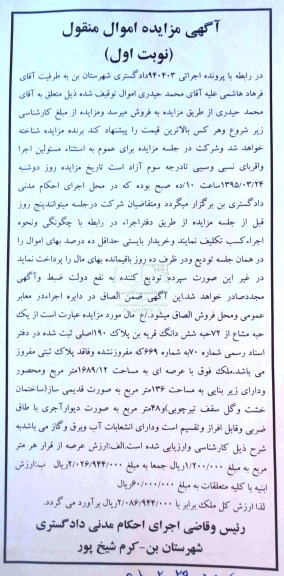 آگهی مزایده اموال منقول
(نوبت اول)
در رابطه با پرونده اجرائی ۹۴۰۴۰۳دادگستری شهرستان بن به طرفیت آقای
فرهاد هاشمی علیه آقای محمد حیدری اموال توقیف شده ذیل متعلق به آقای
محمد حیدری از طریق مزایده به فروش میرسد ومزایده از مبلغ کارشناسی
زیر شروع وهر کس بالاترین قیمت را پیشنهاد کند برنده مزایده شناخته
خواهد شد وشرکت در جلسه مزایده برای عموم به استثناء مسئولین اجرا
واقربای نسبی وسببی تادرجه سوم آزاد است تاریخ مزایده روز دوشنبه
۱۳۹۵/۰۳/۲۴ساعت ۱۰/ده صبح بوده که در محل اجرای احکام مدنی
دادگستری بن برگزار میگردد ومتقاضیان شرکت درجلسه میتوانندپنج روز
قبل از جلسه مزایده از طریق دفتراجراء در رابطه با چگونگی ونحوه
اجراءکسب تکلیف نمایند وخریدار بایستی حداقل ده درصد بهای اموال را
در همان جلسه تودیع ودر ظرف ده روز باقیمانده بهای مال را پرداخت نماید
در غیر این صورت سپرده تودیع کننده به نفع دولت ضبط وآگهی
مجددصادر خواهد شد.این آگهی ضمن الصاق در دایره اجراءدر معابر
عمومی ومحل فروش الصاق میشود./غ مال مورد مزایده عبارت است از یک
حبه مشاع از ۷۲حبه شش دانگ قریه بن پلاک ۱۹۰اصلی ثبت شده در دفتر
اسناد رسمی شماره ۷۰به شماره ۶۶۹که مفروزنشده وفاقد پلاک ثبتی مفروز
می باشد.ملک فوق با عرصه ای به مساحت ۱۶۸۹/۱۲ متر مربع ومحصور
ودارای زیر بنایی به مساحت ۱۳۶متر مربع به صورت قدیمی ساز(ساختمان
خشت وگل سقف تیرچوبی)و۴۸متر مربع به صورت دیوارآجری با طاق
ضربی وقابل افراز و تقسیم است ودارای انشعابات آب وبرق وگاز می باشدبه
شرح ذیل کارشناسی وارزیابی شده است.الف:ارزش عرصه از قرار هر متر
مربع به مبلغ ۱/۲۰۰/۰۰۰ریال جمعا به مبلغ ۲/۰۲۶/۹۴۴/۰۰۰ریال ب:ارزش
ابنیه با کلیه متعلقات به مبلغ ۶۰/۰۰۰/۰۰۰ریال
لذا ارزش کل ملک برابر با ۲/۰۸۶/۹۴۴/۰۰۰ریال برآورد می گردد.
رئیس وقاضی اجرای احکام مدنی دادگستری
شهرستان بن-کرم شیخ پور